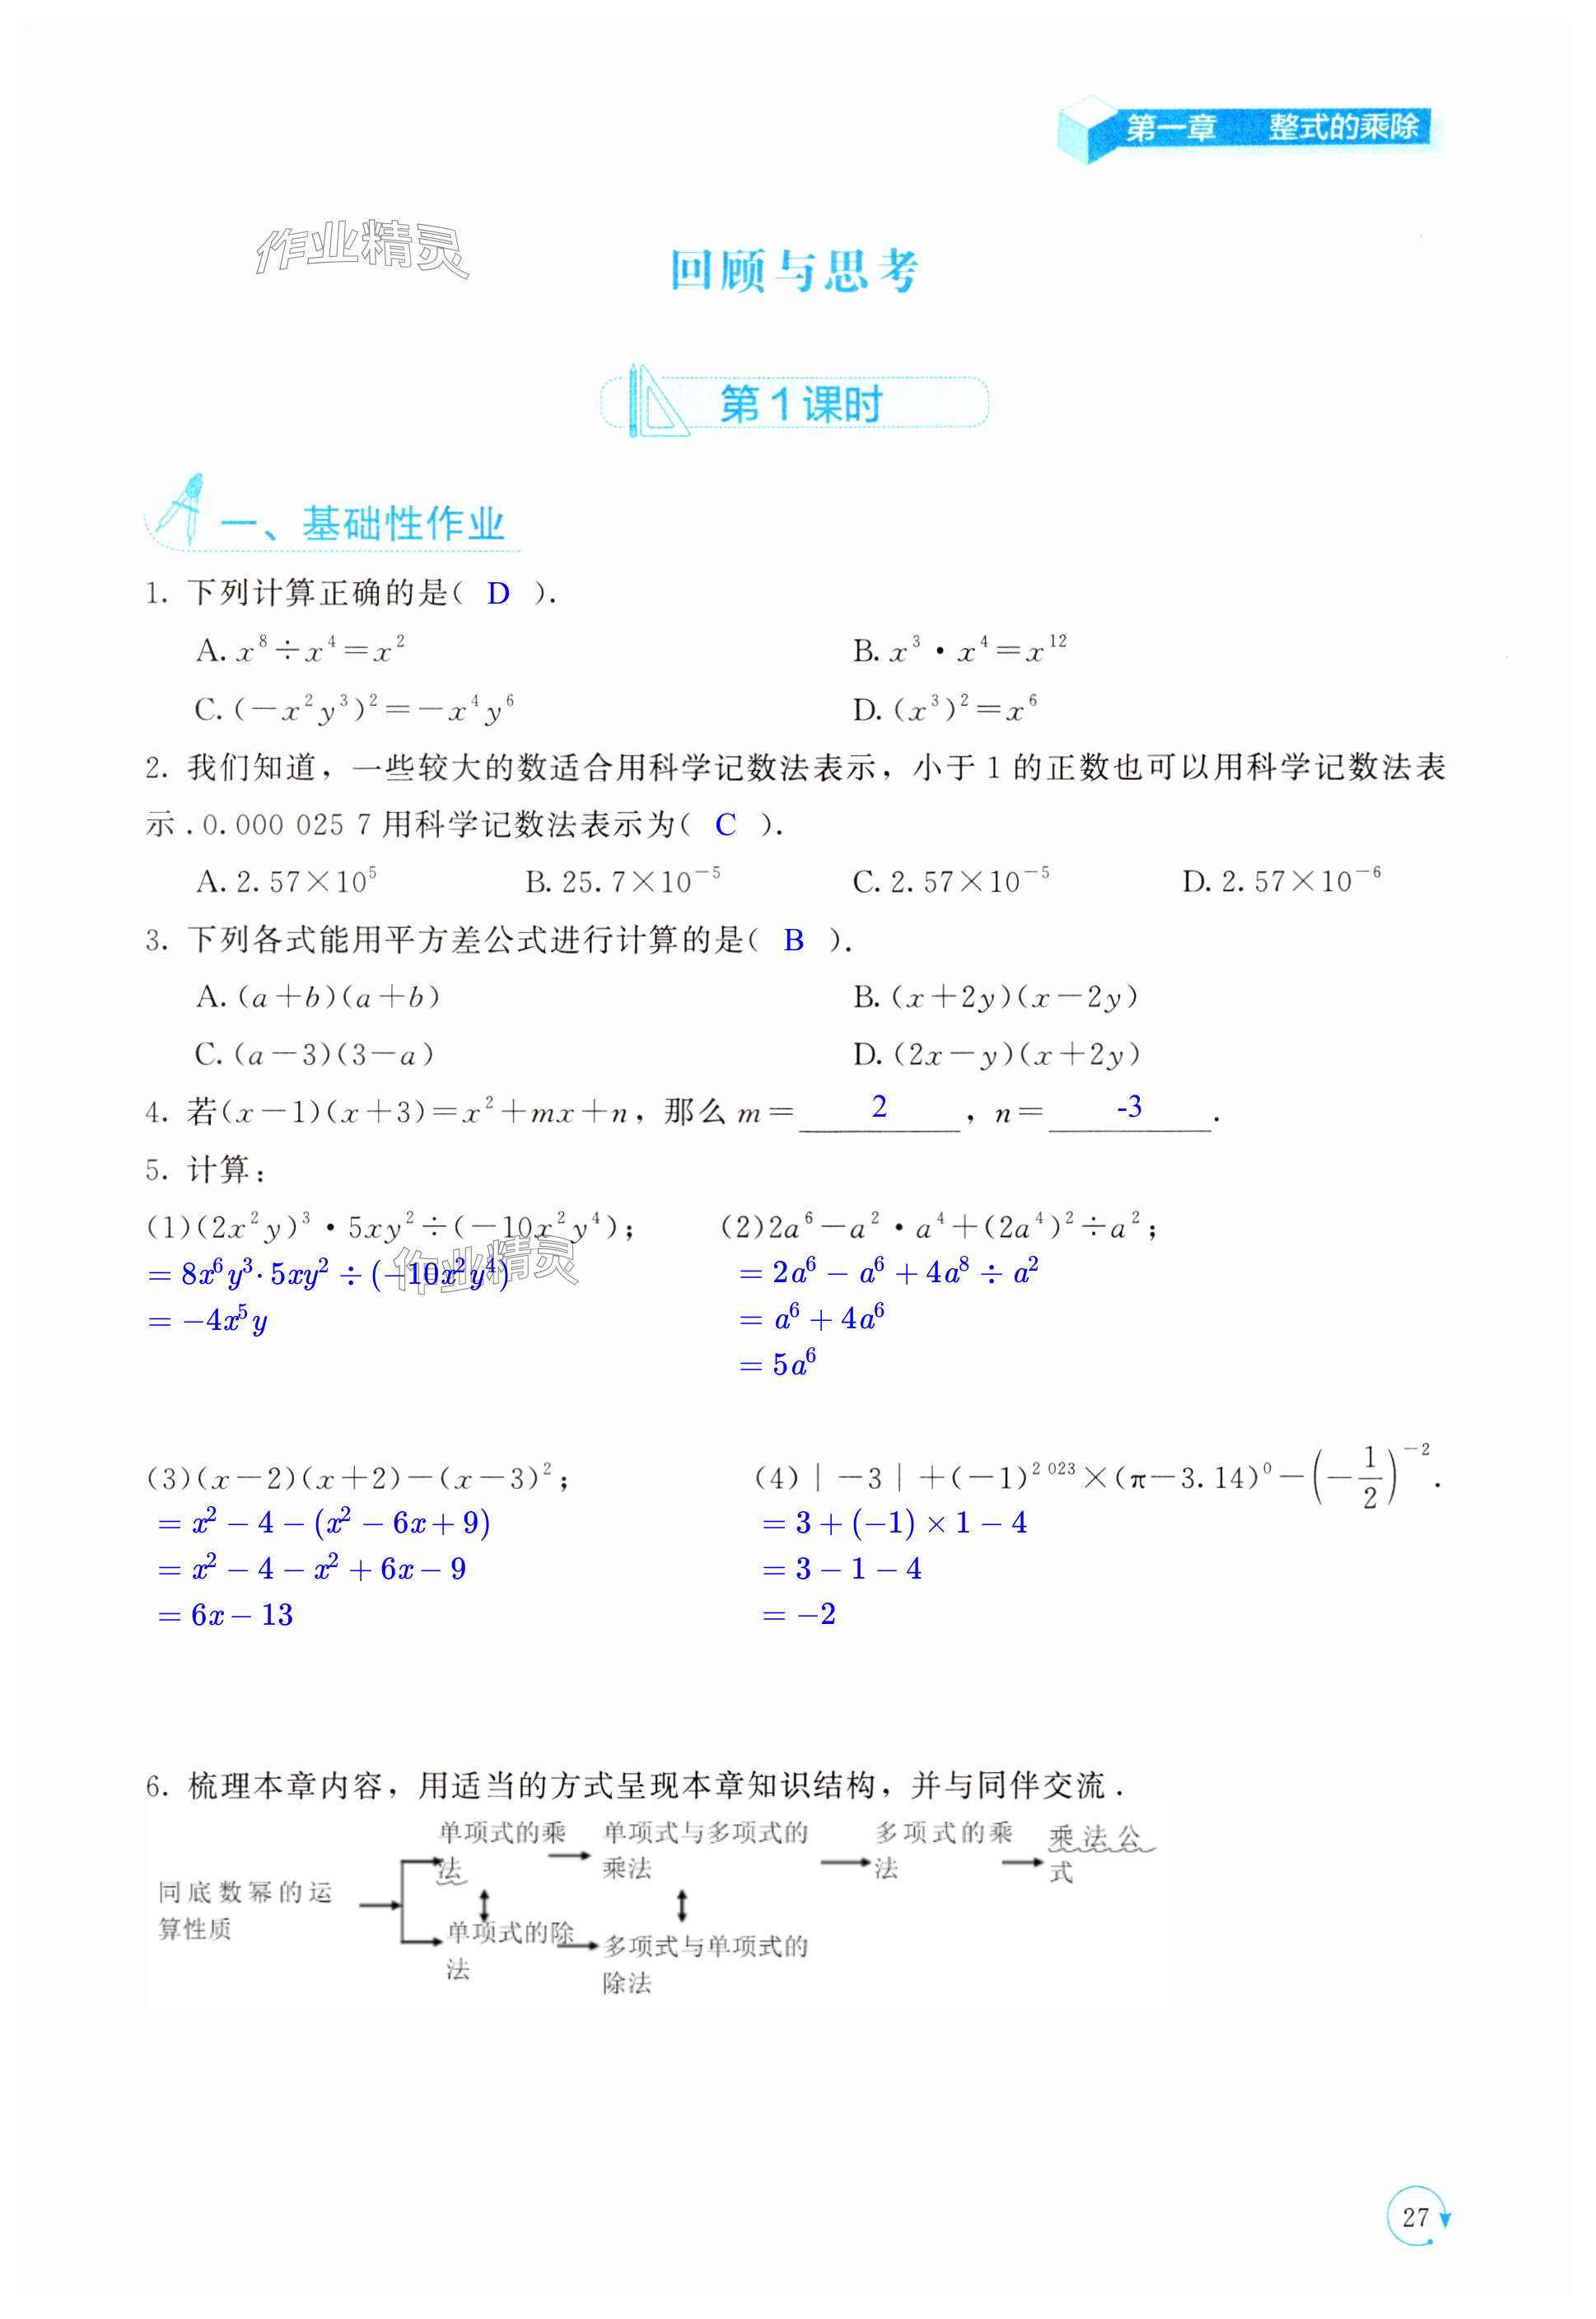 第一章 整式的乘除
作业精灵
回顾与思考
第1课时
一、基础性作业
1. 下列计算正确的是( D ).
A. x⁸÷x⁴=x²
B. x³·x⁴=x¹²
C. (-x²y³)²=-x⁴y⁶
D. (x³)²=x⁶
2. 我们知道，一些较大的数适合用科学记数法表示，小于1的正数也可以用科学记数法表
示.0.000 025 7用科学记数法表示为( C ).
A. 2.57×10⁵ B. 25.7×10⁻⁵ C. 2.57×10⁻⁵ D. 2.57×10⁻⁶
3. 下列各式能用平方差公式进行计算的是( B ).
A. (a+b)(a+b)
B. (x+2y)(x-2y)
C. (a-3)(3-a)
D. (2x-y)(x+2y)
4. 若(x-1)(x+3)=x²+mx+n，那么m=2，n=-3.
5. 计算：
(1)(2x²y)³·5xy²÷(-10x²y⁴)；
= 8x⁶y³·5xy²÷(-10x²y⁴)
= -4x⁵y
作业精灵
(2)2a⁶-a²·a⁴+(2a⁴)²÷a²；
= 2a⁶-a⁶+4a⁸÷a²
= a⁶+4a⁶
= 5a⁶
(3)(x-2)(x+2)-(x-3)²；
= x²-4-(x²-6x+9)
= x²-4-x²+6x-9
= 6x-13
(4)|-3|+(-1)²⁰²³×(π-3.14)⁰-(-1/2)⁻².
= 3+(-1)×1-4
= 3-1-4
= -2
6. 梳理本章内容，用适当的方式呈现本章知识结构，并与同伴交流.
同底数幂的运
算性质
单项式的乘
法
单项式与多项式的
乘法
多项式的乘
法
乘法公
式
单项式的除
法
多项式与单项式的
除法
27